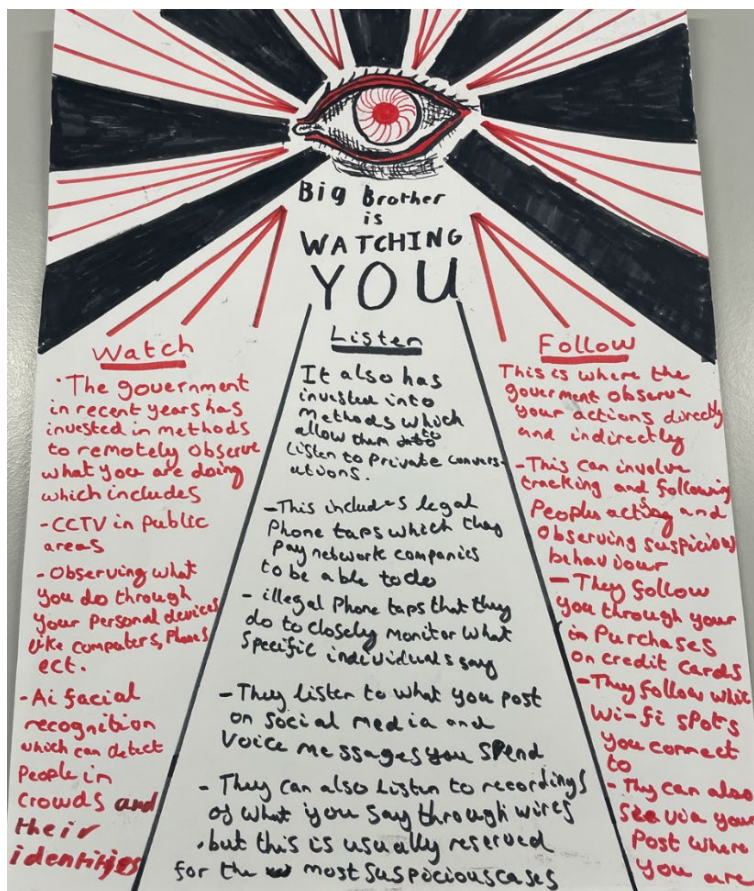 Big Brother
is
WATCHING
YOU
Watch
· The government
in recent years has
invested in methods
to remotely observe
what you are doing
which includes
- CCTV in Public
areas
- Observing what
you do through
your personal devices
like computers, Phones
ect.
- Ai facial
recognition
which can detect
People in
crowds and
their
identities
Listen
It also has
invested into
Methods which
allow them to
Listen to Private convers-
ations.
- This includes legal
Phone taps which they
Pay network companies
to be able to do
- illegal Phone taps that they
do to closely monitor what
Specific individuals say
- They listen to what you post
on social media and
Voice messages you spend
- They can also listen to recordings
of what you say through wires
, but this is usually reserved
for the most suspicious cases
Follow
This is where the
goverment observe
your actions directly
and indirectly
- This can involve
tracking and following
Peoples acting and
Observing suspicious
behaviour
- They follow
you through your
in Purchases
on credit cards
- They follow what
Wi-fi spots
you connect
to
- Thy can also
see via your
Post where
you are